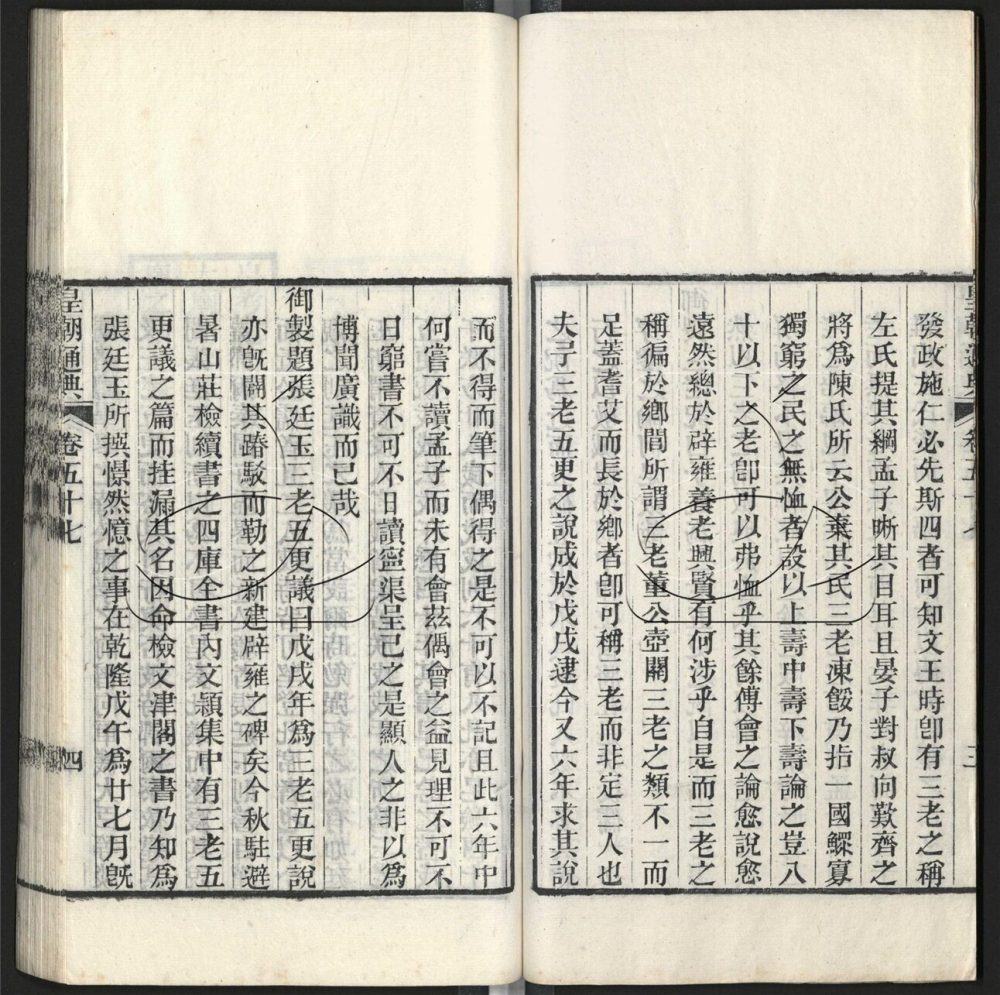 發政施仁必先斯四者可知文王時卽有三老之稱
左氏提其綱孟子晰其目耳且晏子對叔向歎齊之
將爲陳氏所云公棄其民三老凍餒乃指一國鰥寡
獨窮之民之無恤者設以上壽中壽下壽論之豈八
十以下之老卽可以弗恤乎其餘傅會之論愈說愈
遠然總於辟雍養老興賢有何涉乎自是而三老之
稱徧於鄉閭所謂三老董公壺關三老之類不一而
足蓋耆艾而長於鄉者卽可稱三老而非定三人也
夫子三老五更之說成於戊戌逮今又六年求其說
而不得而筆下偶得之是不可以不記且此六年中
何嘗不讀孟子而未有會茲偶會之益見理不可不
日窮書不可不日讀寧渠呈己之是顯人之非以爲
博聞廣識而已哉
御製題張廷玉三老五更議曰戊戌年爲三老五更說
亦旣闢其踳駁而勒之新建辟雍之碑矣今秋駐避
暑山莊檢續書之四庫全書內文穎集中有三老五
更議之篇而挂漏其名因命檢文津閣之書乃知爲
張廷玉所撰憬然憶之事在乾隆戊午爲廿七月旣
皇朝通典 卷五十七 四